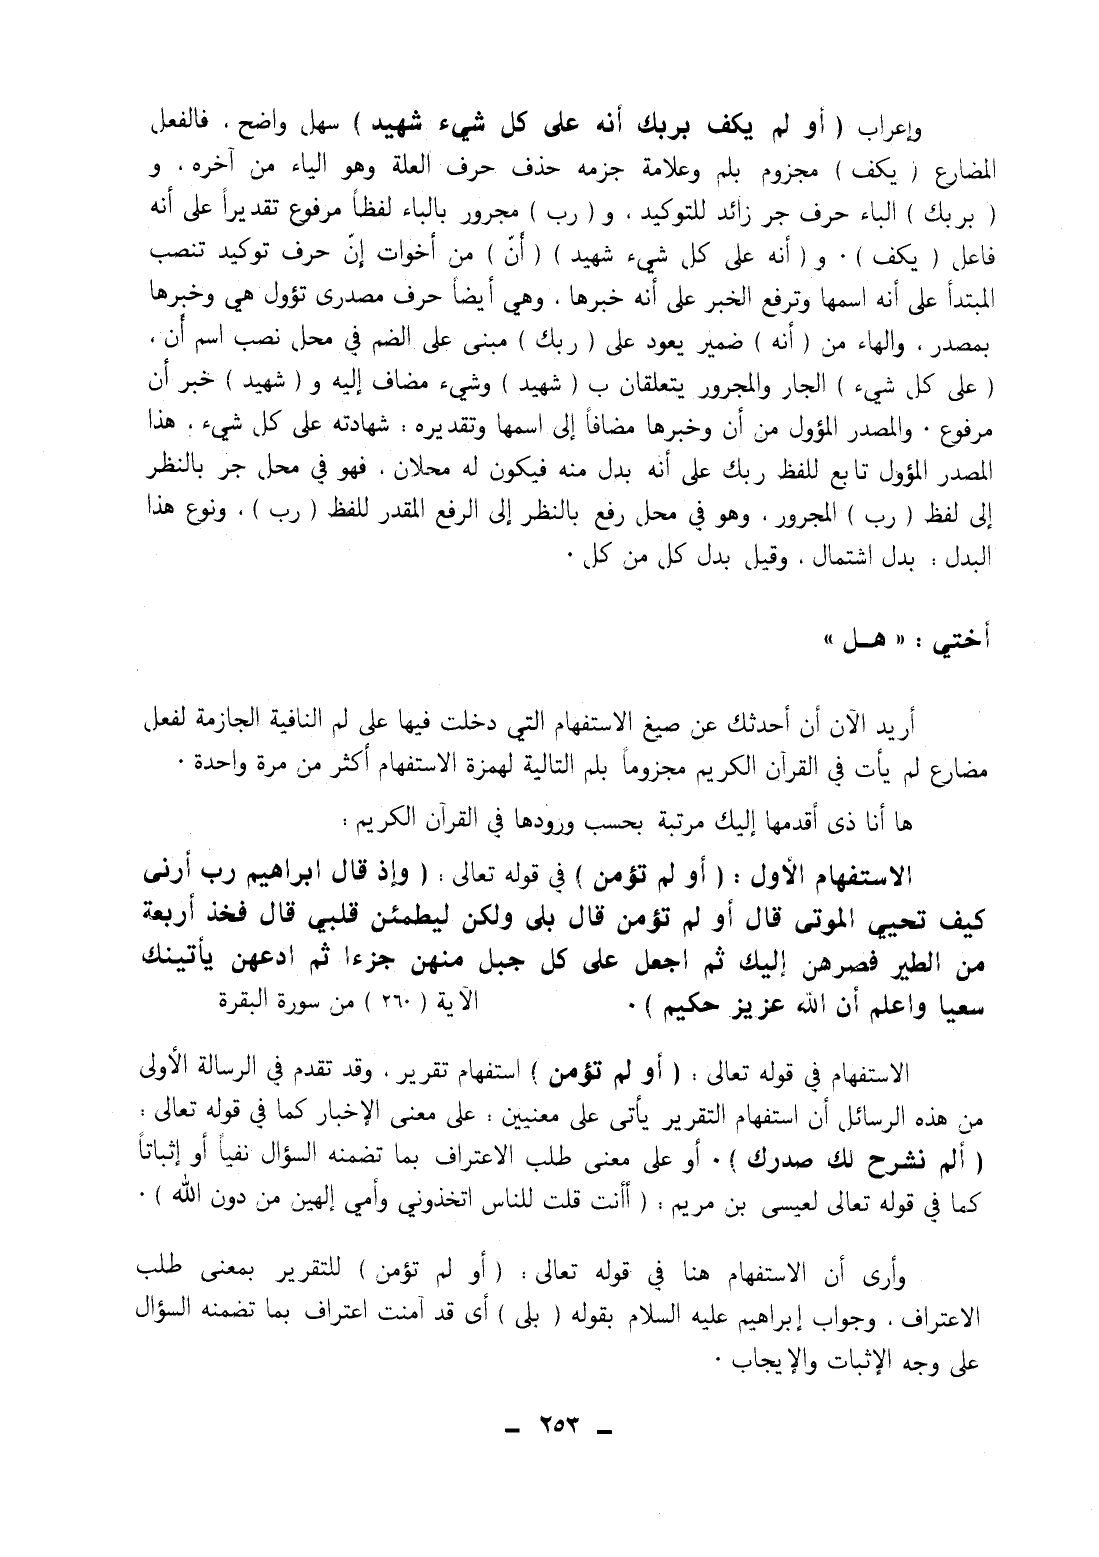 وإعراب ( أو لم يكف بربك أنه على كل شيء شهيد ) سهل واضح ، فالفعل
المضارع ( يكف ) مجزوم بلم وعلامة جزمه حذف حرف العلة وهو الياء من آخره ، و
( بربك ) الباء حرف جر زائد للتوكيد ، و ( رب ) مجرور بالباء لفظاً مرفوع تقديراً على أنه
فاعل ( يكف ) ٠ و ( أنه على كل شيء شهيد ) ( أنّ ) من أخوات إنّ حرف توكيد تنصب
المبتدأ على أنه اسمها وترفع الخبر على أنه خبرها ، وهي أيضاً حرف مصدرى تؤول هي وخبرها
بمصدر ، والهاء من ( أنه ) ضمير يعود على ( ربك ) مبنى على الضم في محل نصب اسم أن ،
( على كل شيء ) الجار والمجرور يتعلقان ب ( شهيد ) وشيء مضاف إليه و ( شهيد ) خبر أن
مرفوع ٠ والمصدر المؤول من أن وخبرها مضافاً إلى اسمها وتقديره : شهادته على كل شيء ، هذا
المصدر المؤول تابع للفظ ربك على أنه بدل منه فيكون له محلان ، فهو في محل جر بالنظر
إلى لفظ ( رب ) المجرور ، وهو في محل رفع بالنظر إلى الرفع المقدر للفظ ( رب ) ، ونوع هذا
البدل : بدل اشتمال ، وقيل بدل كل من كل ٠
أختي : « هـل »
أريد الآن أن أحدثك عن صيغ الاستفهام التي دخلت فيها على لم النافية الجازمة لفعل
مضارع لم يأت في القرآن الكريم مجزوماً بلم التالية لهمزة الاستفهام أكثر من مرة واحدة ٠
ها أنا ذى أقدمها إليك مرتبة بحسب ورودها في القرآن الكريم :
الاستفهام الأول : ( أو لم تؤمن ) في قوله تعالى : ( وإذ قال ابراهيم رب أرنى
كيف تحيي الموتى قال أو لم تؤمن قال بلى ولكن ليطمئن قلبي قال فخذ أربعة
من الطير فصرهن إليك ثم اجعل على كل جبل منهن جزءا ثم ادعهن يأتينك
سعيا واعلم أن الله عزيز حكيم ) ٠ الآية ( ٢٦٠ ) من سورة البقرة
الاستفهام في قوله تعالى : ( أو لم تؤمن ) استفهام تقرير ، وقد تقدم في الرسالة الأولى
من هذه الرسائل أن استفهام التقرير يأتى على معنيين : على معنى الإخبار كما في قوله تعالى :
( ألم نشرح لك صدرك ) ٠ أو على معنى طلب الاعتراف بما تضمنه السؤال نفياً أو إثباتاً
كما في قوله تعالى لعيسى بن مريم : ( أأنت قلت للناس اتخذوني وأمي إلهين من دون الله ) ٠
وأرى أن الاستفهام هنا في قوله تعالى : ( أو لم تؤمن ) للتقرير بمعنى طلب
الاعتراف ، وجواب إبراهيم عليه السلام بقوله ( بلى ) أى قد آمنت اعتراف بما تضمنه السؤال
على وجه الإثبات والإيجاب ٠
ـ ٢٥٣ ـ